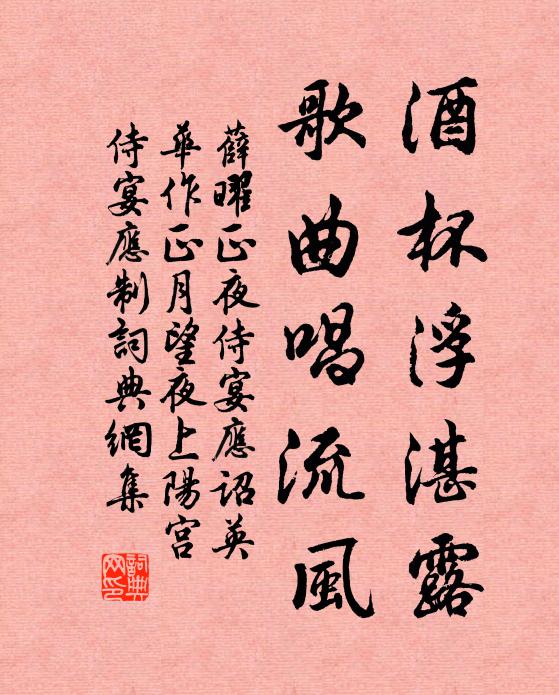 酒杯浮湛露
歌曲唱流風
薛曜正夜侍宴應詔英
華作正月望夜上陽宮
侍宴應制詞典網集
詞典网印